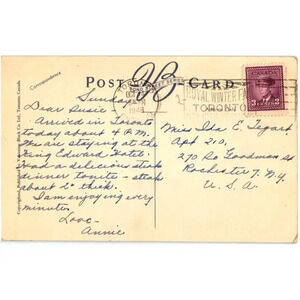 POST CARD
Correspondence
CANADA
3 3
ROYAL WINTER FAIR
TORONTO
Sunday
Dear Susie -
Arrived in Toronto
today about 4 P.M.
We are staying at the
King Edward Hotel.
Had a delicious steak
dinner tonite - steak
about 2" thick.
I am enjoying every
minute.
Love -
Annie
Miss Ida E. Tegart
Apt 210,
270 So Goodman St
Rochester 7, N.Y.
U.S.A.